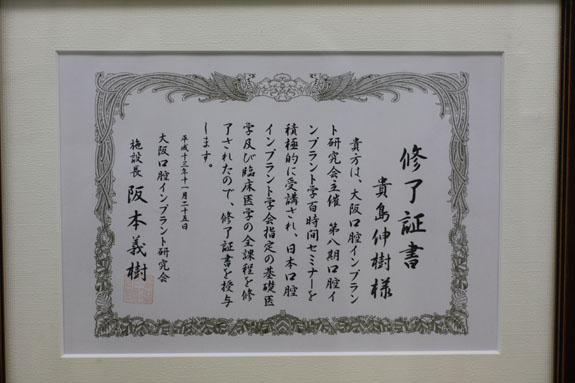 修了証書
貴島伸樹様
貴方は、大阪口腔インプラン
ト研究会主催 第八期口腔イ
ンプラント学百時間セミナーを
積極的に受講され、日本口腔
インプラント学会指定の基礎医
学及び臨床医学の全課程を修
了されたので、修了証書を授与
します。
平成十三年十一月二十五日
大阪口腔インプラント研究会
施設長 阪本義樹